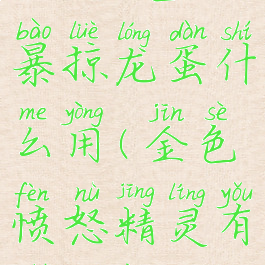 bào lüè lóng dàn shí
暴掠龙蛋什
me yòng jīn sè
么用(金色
fèn nù jīng líng yǒu
愤怒精灵有